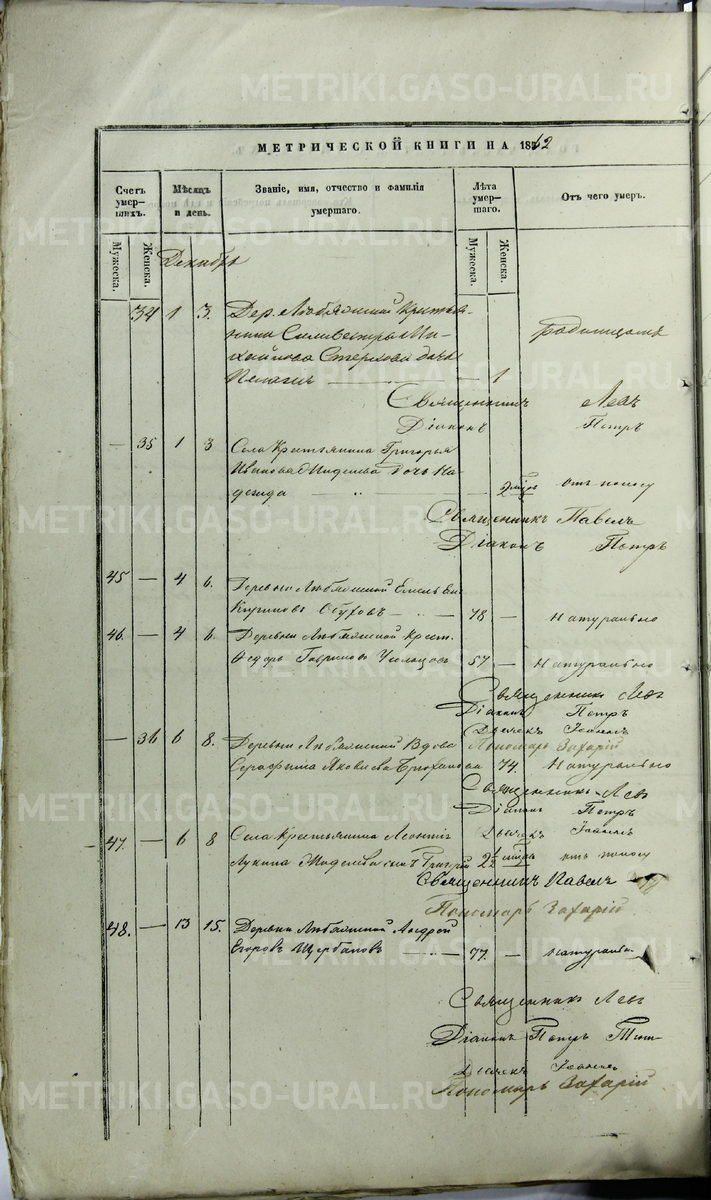 METRIKI.GASO-URAL.RU
МЕТРИЧЕСКОЙ КНИГИ НА 1862
Счетъ умер-шихъ.
Мѣсяцъ и день.
Званіе, имя, отчество и фамилія умершаго.
Лѣта умер-шаго.
Отъ чего умеръ.
Мужеска.
Женска.
Мужеска.
Женска.
Декабрь
34 1 3. Дер. Любяжской Крестья-
нина Силивестра Ми-
хайлова дочь
Пелагея — 1 Родимцемъ
Священникъ Левъ
Діаконъ Петръ
— 35 1 3 Села Крестьянина Григорья
Иванова дочь На-
дежда — отъ поносу
Священникъ Павелъ
Діаконъ Петръ
45 — 4 6. Деревни Любяжской
78 — Натурально
46. — 4 6. Деревни Любяжской Крест.
Ѳедоръ Гавриловъ 57 — Натурально
Священникъ Левъ
Діаконъ Петръ
Дьячекъ Іоаннъ
Пономарь Захарій
— 36 6 8. Деревни Любяжской Вдова
Серафима Яковлева 74. Натурально
Священникъ Левъ
Діаконъ Петръ
Дьячекъ Іоаннъ
47. — 6 8 Села Крестьянина Леонтія
Лукина сынъ Григорій отъ поносу
Священникъ Павелъ
Пономарь Захарій
48. — 13 15. Деревни Любяжской Андрей
Егоровъ Щербаковъ — 77. — Натурально
Священникъ Левъ
Діаконъ Петръ
Дьячекъ Іоаннъ
Пономарь Захарій